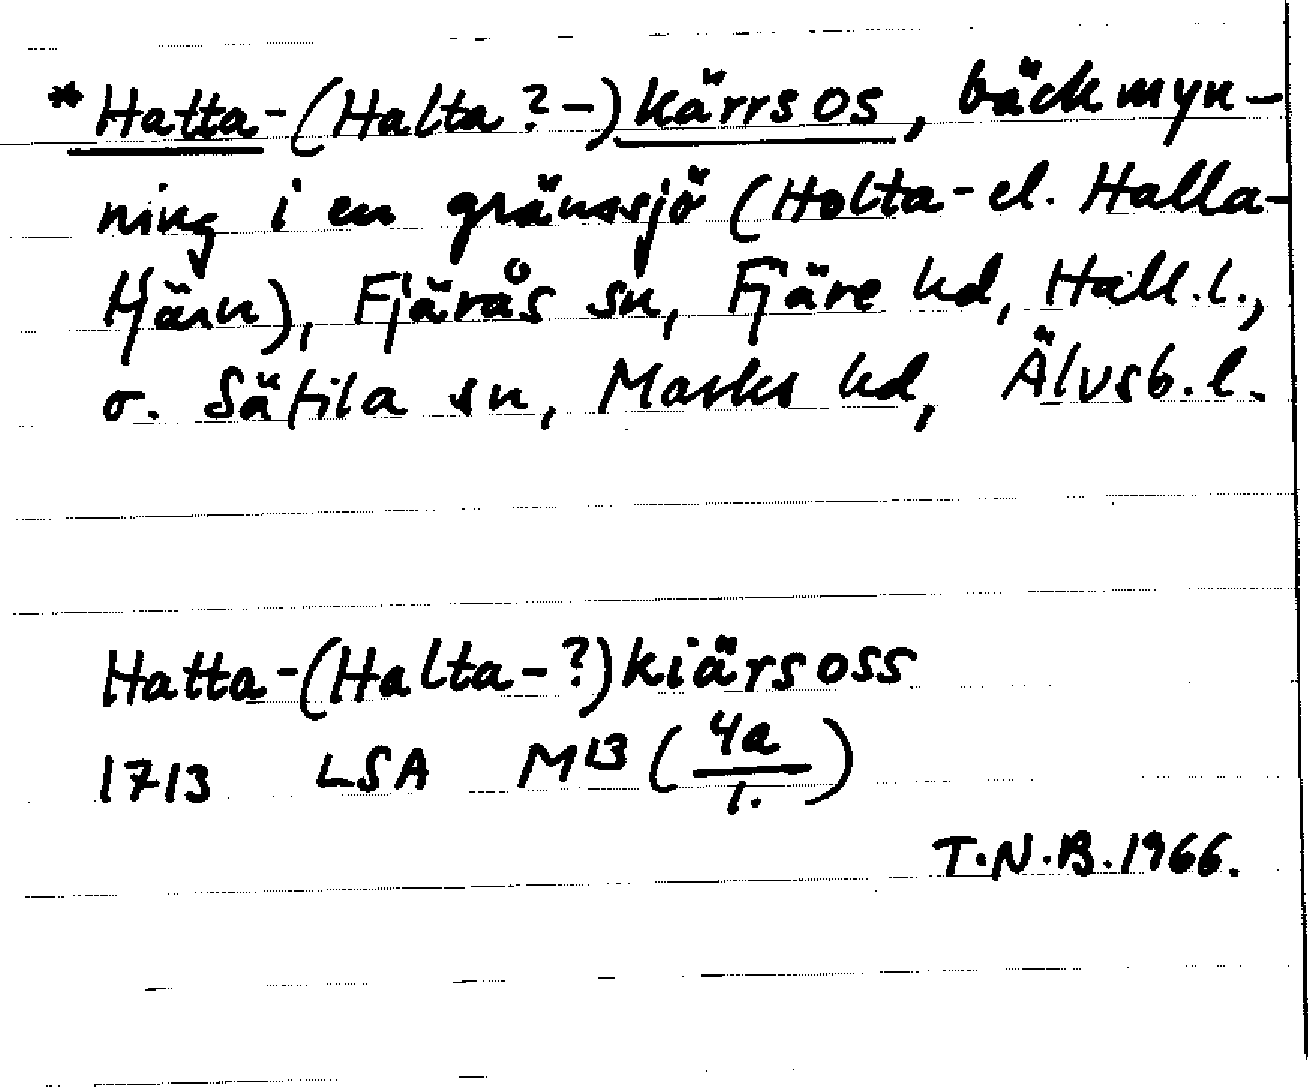 *Hatta-(Halta?-)kärrsos, bäckmyn-
ning i en gränssjö (Holta- el. Halla-
tjärn), Fjärås sn, Fjäre hd, Hall. l.,
o. Sätila sn, Marks hd, Älvsb. l.
Hatta-(Halta-?)kiärsoss
1713 LSA M13 (4a/1.)
T.N.B. 1966.